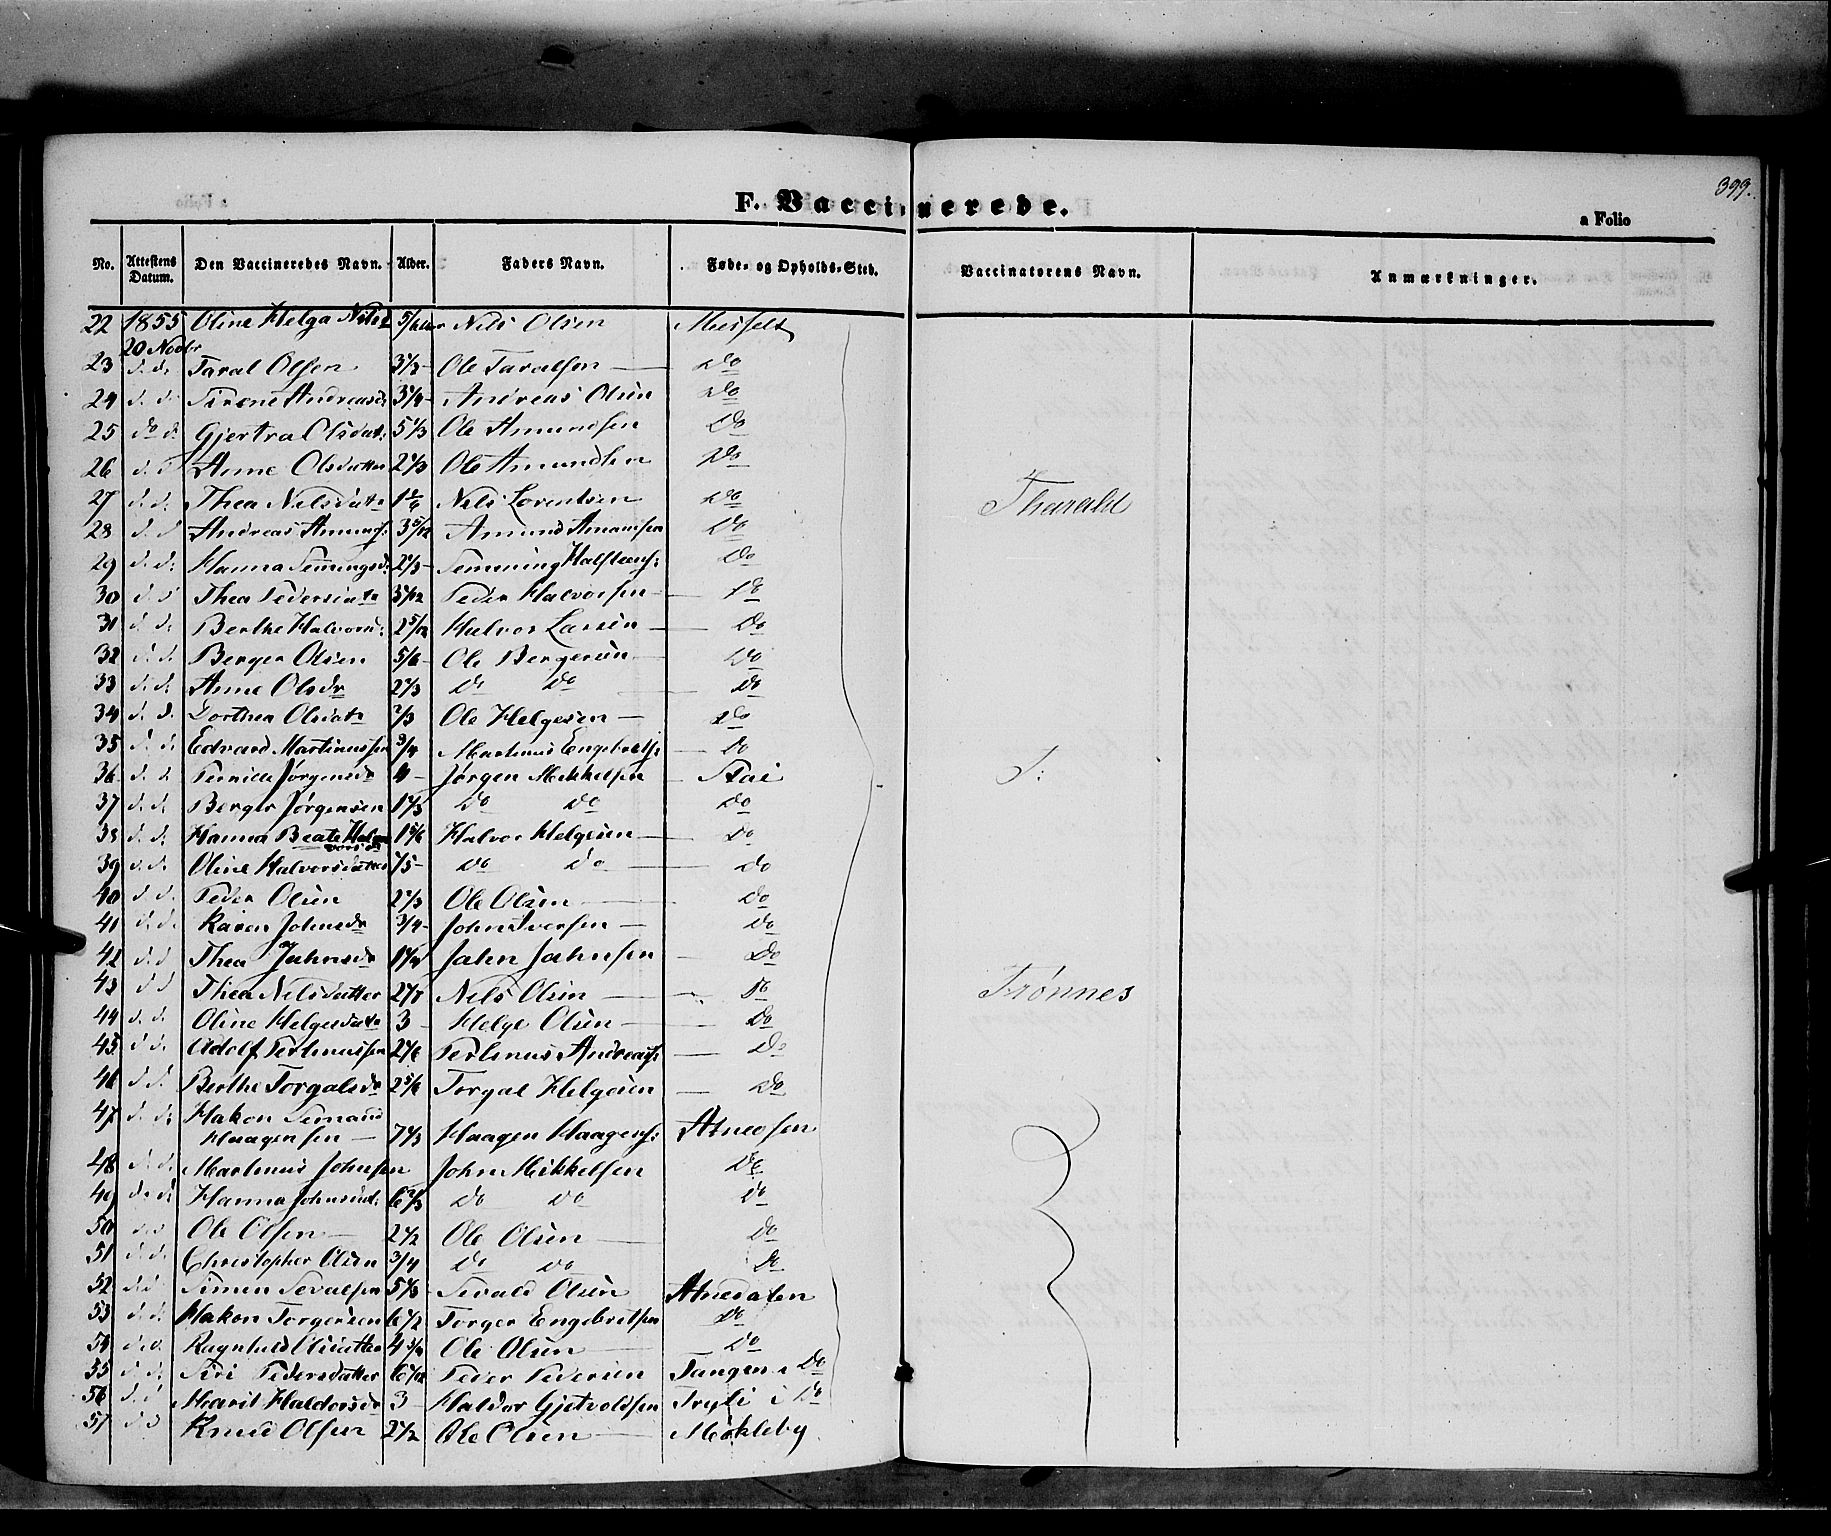 399.
F. Vaccinerede.
a Folio
No. Attestens Datum. Den Vaccineredes Navn. Alder. Faders Navn. Føde- og Opholds-Sted. Vaccinatorens Navn. Anmærkninger.
22 1855 Oline Helga Nils Nils Olsen Messelt
20 Novbr
23 d. d. Taral Olsen Ole Taralsen Do
24 d. d. Andreas Olsen Do
25 do d. Gjertru Olsdat: 5 1/3 Ole Amundsen Do
26 d. d Anne Olsdatter 2 1/3 Ole Amundsen Do
27 d. d. Thea Nilsdatr Nils Lorentsen Do Tharald
28 d. d Andreas Amunds: 3 5/12 Amund Amundsen Do
29 d. d: Hanna Semmingsd: Semming Halfteens: Do
30 d d Thea Pedersdatr Peder Halvorsen Do
31 d d. Berthe Halvorsd: 2 5/12 Halvor Larsen Do
32 d. d. Berger Olsen 5/6 Ole Bergersen Do
33 d. d. Anne Olsdr 2 1/3 Do Do Do
34 d. d. Dorthea Olsdatr Ole Helgesen Do
35 d. d. Edvard Martinussen 3/4 Martinus Engebrets: Do
36 d. d. Pernille Jørgensdr 4 Jørgen Mikkelsen Stai T:
37 d. d. Berger Jørgensen Do Do Do
38 d. d. Hanna Beate Halvorsd 1 5/6 Halvor Helgesen Do
39 d. d. Oline Halvorsdatter Do Do Do
40 d d Peder Olsen 2 1/3 Ole Olsen Do
41 d. d. Karen Johnsdr 3/4 John Iversen Do
42 d. d Thea Jahnsdr 1 1/4 Jahn Jahnsen Do
43 d d Thea Nilsdatter Nils Olsen Do Trønnes
44 d. d. Oline Helgesdatr 3 Helge Olsen Do
45 d d. Adolf Perlinussen 2 1/6 Perlinus Andreas: Do
46 d. d. Berthe Torgalsdr 2 5/6 Torgal Helgesen Do
47 d. d. Hakon
Haagensen 7 1/3 Haagen Haagens: Atneosen
48 d. d. Martinus Johnsen John Mikkelsen Do
49 d. d. Hanna Johnsdat: 6 2/3 Do Do Do
50 d d Ole Olsen 2 1/2 Ole Olsen Do
51 d. d. Christopher Olsen 3/4 Do Do Do
52 d. d Simen Sevalsen 5 1/3 Sevald Olsen Atnedalen
53 d. d. Hakon Torgersen 6 1/2 Torger Engebretsen Do
54 d. d. Ragnhild Olsdatter 4 3/4 Ole Olsen Do
55 d d. Siri Pedersdatter Peder Pedersen Tangen i Do
56 d. d Marit Haldorsdr 3 Haldor Gjetvoldsen Tryli i Do
57 d d Knud Olsen 2 1/2 Ole Olsen Mökleby